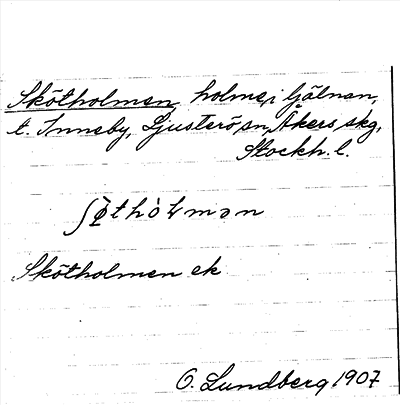 Skötholmen, holme i Gälnan,
t. Inneby, Ljusterö sn, Åkers skg,
Stockh. l.
Skötholmen ek
O. Lundberg 1907